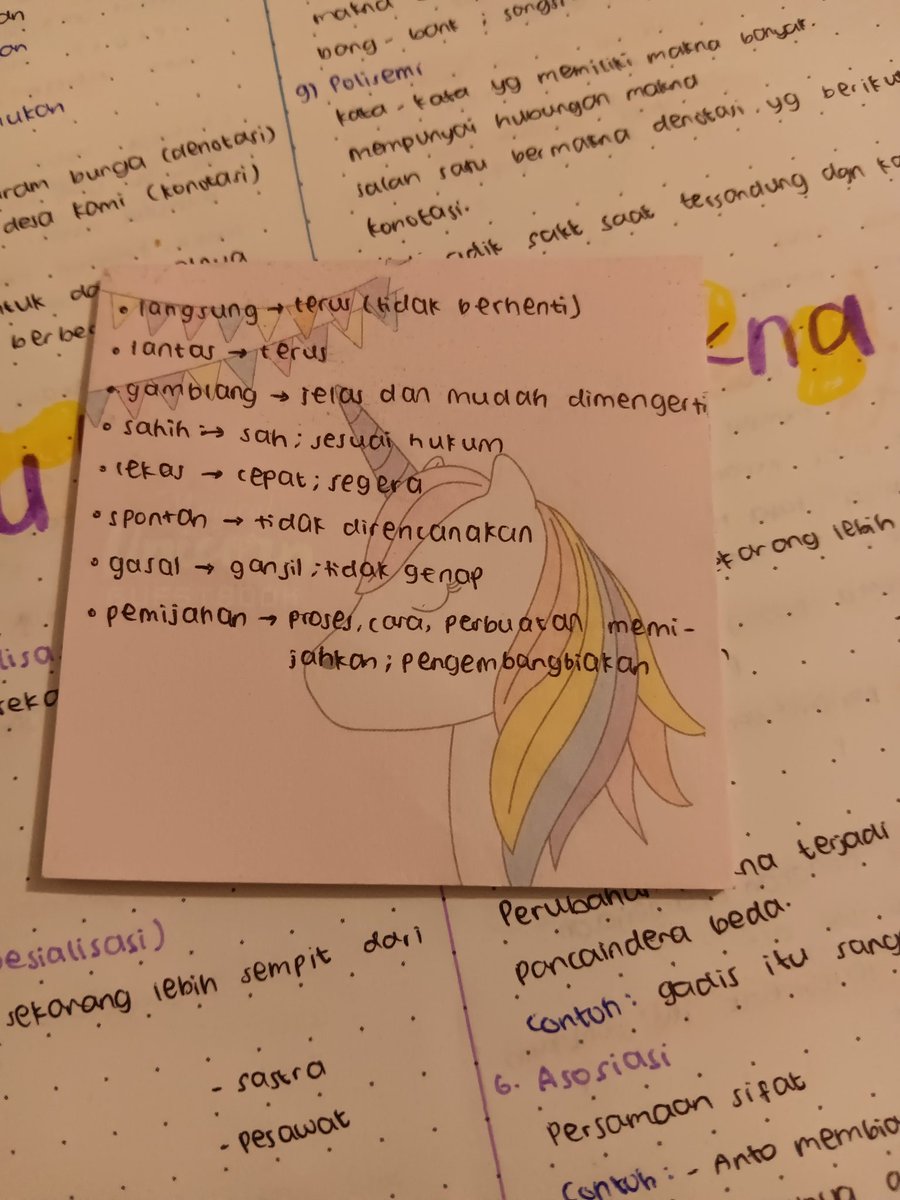 makna
bong - bank ; songsi
g) Polisemi
kata - kata yg memiliki makna banyak.
mempunyai hubungan makna
salah satu bermakna denotasi yg berikut
konotasi.
sakit saat tersandung dan ka
ukan
ram bunga (denotasi)
desa kami (konotasi)
• langsung → terus (tidak berhenti)
• lantas → terus
• gamblang → jelas dan mudah dimengerti
• sahih → sah ; sesuai hukum
• lekas → cepat ; segera
• spontan → tidak direncanakan
• gasal → ganjil ; tidak genap
• pemijahan → proses, cara, perbuatan memi-
jahkan ; pengembangbiakan
na
karang lebih
esialisasi)
sekarang lebih sempit dari
- sastra
- pesawat
na terjadi
pancaindera beda.
contoh : gadis itu sang
6. Asosiasi
Persamaan sifat
contoh : - Anto membia